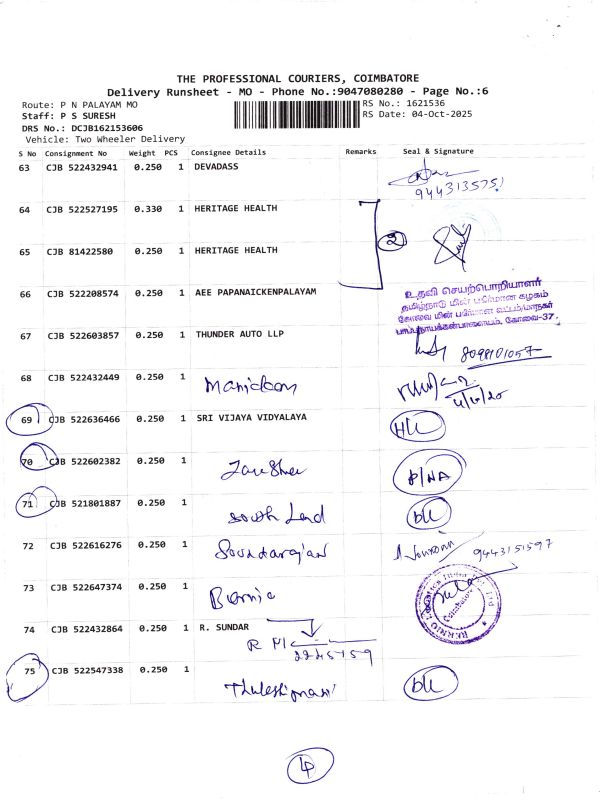 THE PROFESSIONAL COURIERS, COIMBATORE
Delivery Runsheet - MO - Phone No.:9047080280 - Page No.:6
Route: P N PALAYAM MO RS No.: 1621536
Staff: P S SURESH RS Date: 04-Oct-2025
DRS No.: DCJB162153606
Vehicle: Two Wheeler Delivery
S No Consignment No Weight PCS Consignee Details Remarks Seal & Signature
63 CJB 522432941 0.250 1 DEVADASS
944313575
64 CJB 522527195 0.330 1 HERITAGE HEALTH
2
65 CJB 81422580 0.250 1 HERITAGE HEALTH
66 CJB 522208574 0.250 1 AEE PAPANAICKENPALAYAM
உதவி செயற்பொறியாளர்
தமிழ்நாடு மின் பகிர்மான கழகம்
கோவை மின் பகிர்மான வட்டம்/மாநகர்
பாப்பநாயக்கன்பாளையம், கோவை-37.
67 CJB 522603857 0.250 1 THUNDER AUTO LLP
8098101057
68 CJB 522432449 0.250 1
69 CJB 522636466 0.250 1 SRI VIJAYA VIDYALAYA
70 CJB 522602382 0.250 1
71 CJB 521801887 0.250 1 South Land
72 CJB 522616276 0.250 1 Soundarajan 9443151597
73 CJB 522647374 0.250 1
74 CJB 522432864 1 0.250 1 R. SUNDAR
2245459
75 CJB 522547338 0.250 1